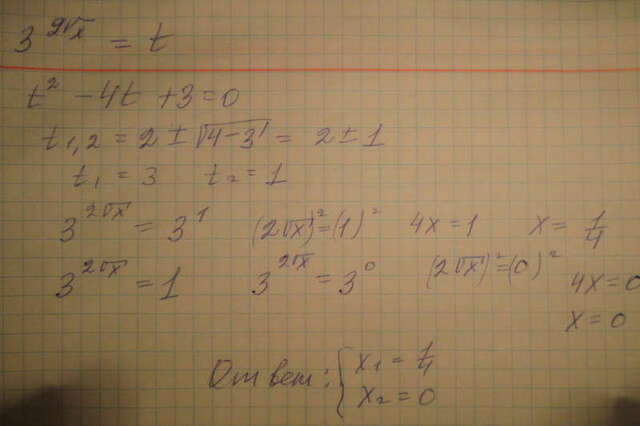 3^{2√x} = t
t² - 4t + 3 = 0
t₁,₂ = 2 ± √(4-3) = 2 ± 1
t₁ = 3 t₂ = 1
3^{2√x} = 3¹ (2√x)² = (1)² 4x = 1 x = 1/4
3^{2√x} = 1 3^{2√x} = 3⁰ (2√x)² = (0)²
4x = 0
x = 0
Ответ: { x₁ = 1/4
x₂ = 0